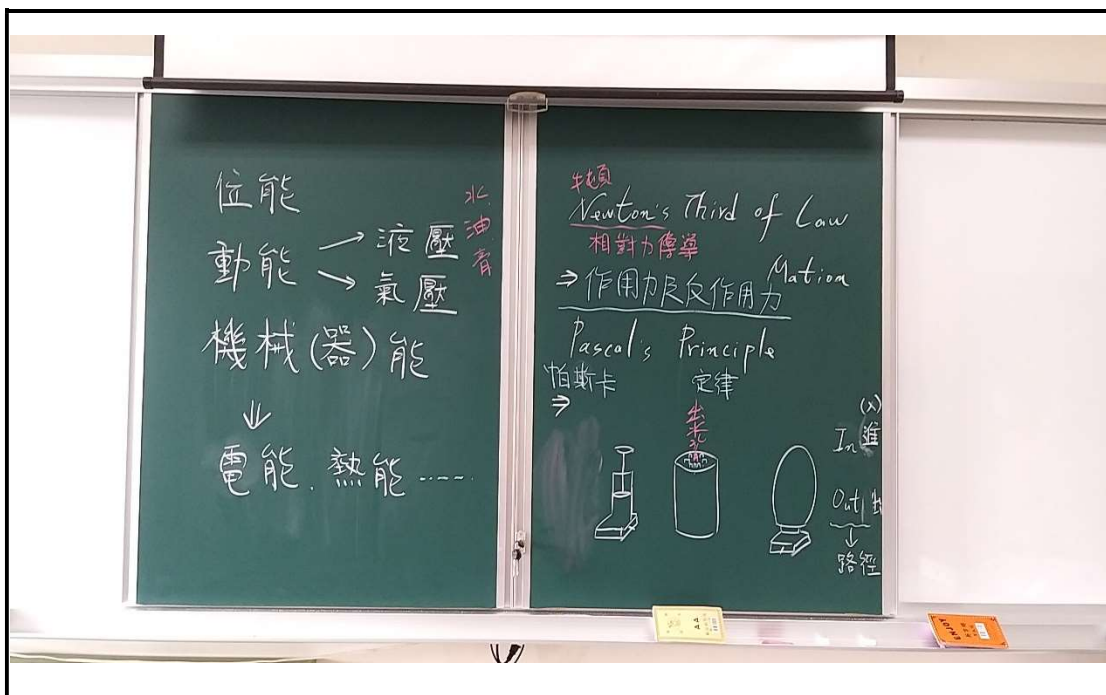 位能
動能 → 液壓
↘ 氣壓
水.油.膏
機械(器)能
↓
電能.熱能……
牛頓
Newton's Third of Law
相對力傳導
Mation
⇒作用力及反作用力
Pascal's Principle
帕斯卡 定律
⇒
(x)
In 進
Out
↓
路徑